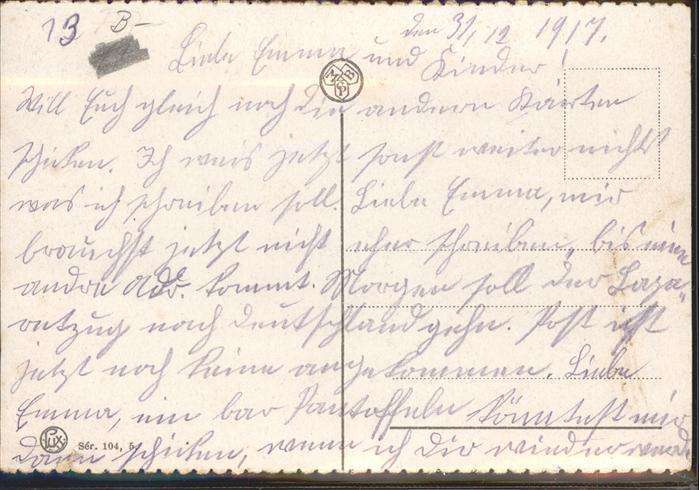 13 B-
den 31/12 1917.
Liebe Emma und Kinder!
Will Euch gleich noch die andern Karten
schicken. Ich weis jetzt sonst weiter nichts
was ich schreiben soll. Liebe Emma, mir
brauchst jetzt nicht eher schreiben, bis eine
andre Adr. kommt. Morgen soll der Laza-
rettzug nach Deutschland gehn. Post ist
jetzt noch keine angekommen. Liebe
Emma, ein bar Pantoffeln könntest mir
dann schicken, wenn ich dir wieder
LUX
Sér. 104, 5